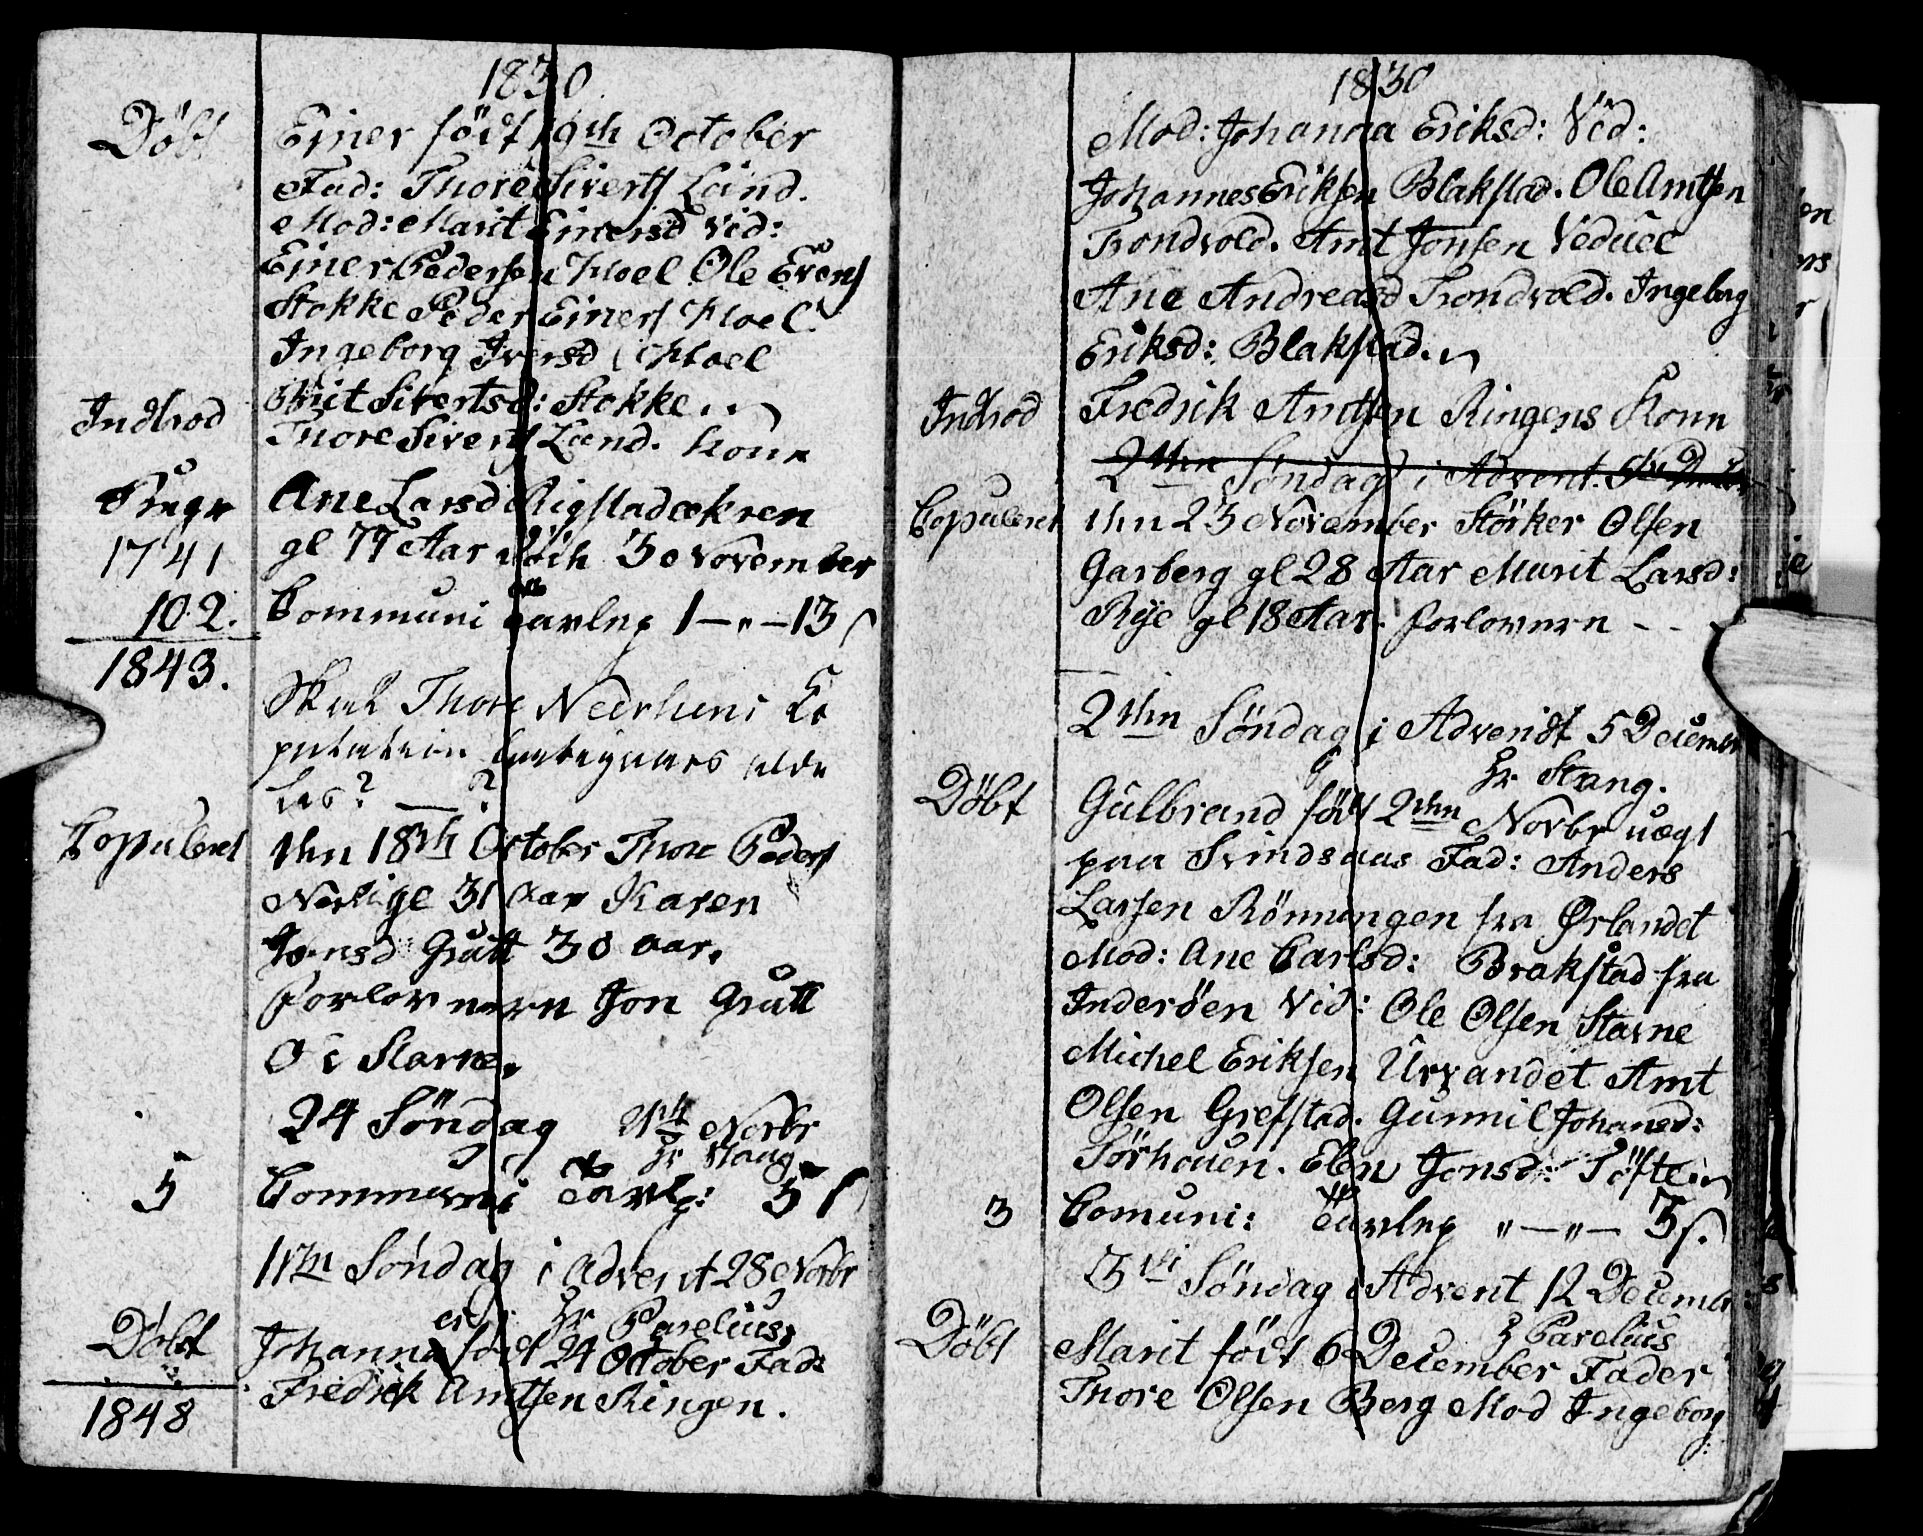 1830
Döbt Ejner födt 19th October
Fad: Thore Siverts Lund.
Mod: Marit Einersd Vid:
Ejner Pedersen Moel Ole Evens
Stokke Peder Einers Moel
Ingeborg Iversd Moel
Brit Sivertsd: Stokke..
Indtrod Thore Siverts Lund. Kone
Ane Larsd Rigstadækren
1741 gl 77 Aar död 3 November
102. Communi Tavlep 1 — „ — 13 s
1843.
Skal Thore Nedrhuus Co
pulation betegnes
? — ?
Copuleret den 18th October Thore Peders
gl 31 Aar Karen
Jonsd Grütt 30 aar.
Forlovnern Jon Grütt
O: Starne.
24 Söndag 21th Novbr
Hr Stang
5 Communi Tavlp: 5 s
1ste Söndag i Advent 28 Novbr
Hr Parelius
Döbt Johanna födt 24 October Fad:
Fredrik Amtsen Ringen.
1848
1830
Mod: Johanna Eriksd: Vid:
Johannes Eriksen Blakstad. Ole Amtsen
Trondvold. Amt Jonsen Veduel
Ane Andreasd Trondvold. Ingeborg
Eriksd: Blakstad.
Indtrod Fredrik Amtsen Ringens Kone
2den Söndag i Advent
Copuleret den 23 November Störker Olsen
Garberg gl 28 Aar Marit Larsd:
Rye gl 18 Aar. forlovern - -
2den Söndag i Advendt 5 Decembr
Hr Stang.
Döbt Gulbrand födt 2den Novbr uægt
paa Svindsaas Fad: Anders
Larsen Rönningen fra Ørlandet
Mod: Ane Carlsd: Brakstad fra
Inderöen Vid: Ole Olsen Starne
Michel Eriksen Urvandet Amt
Olsen Grefstad. Gunnil Johansd:
Sörhouen. Elen Jonsd: Töfte
3 Comuni: Tavlep „ — „ — 3 s.
3die Söndag i Advent 12 Decembr
H Parelius
Döbt Marit födt 6 December Fader
Thore Olsen Berg Mod Ingeborg